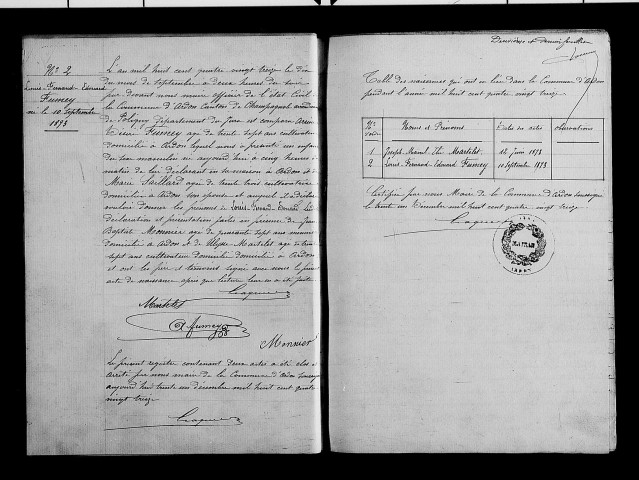 No 2
Louis-Fernand-Edouard
Fumey
né le 10 Septembre
1893
L'an mil huit cent quatre vingt treize le dix
du mois de Septembre à deux heures du soir
par devant nous maire officier de l'état civil
la Commune d'Ardon Canton de Champagnole
de Poligny département du Jura est comparu
Fumey agé de trente Sept ans cultivateur
domicilié à Ardon lequel nous a présenté un enfant
du sexe masculin né aujourd'hui à cinq heures
matin de lui déclarant en sa maison à Ardon et de
Marie Saillard agée de trente trois cultivatrice
domiciliée à Ardon son épouse et auquel il a déclaré
vouloir donner les prénoms de Louis-Fernand-Edouard
déclaration et présentation faites en présence de Jean
Baptiste Monnier agé de quarante sept ans
domicilié à Ardon et de Ulysse Martelet agé de
sept ans cultivateur domicilié à Ardon
et ont les père et témoins signé avec nous le présent
acte de naissance après que lecture leur en a été faite
Martelet
Fumey
Monnier
Le présent registre contenant deux actes a été clos et
arrêté par nous maire de la Commune d'Ardon
aujourd'hui trente un décembre mil huit cent quatre
vingt treize
Deuxième et dernier feuillet
Table des naissances qui ont eu lieu dans la Commune d'Ardon
pendant l'année mil huit cent quatre vingt treize
Noms et Prénoms Dates des actes Observations
1 Joseph Marcel Martelet 12 Juin 1893
2 Louis Fernand Edouard Fumey 10 Septembre 1893
Certifié par nous Maire de la Commune d'Ardon
le trente un Décembre mil huit cent quatre vingt treize
MAIRIE